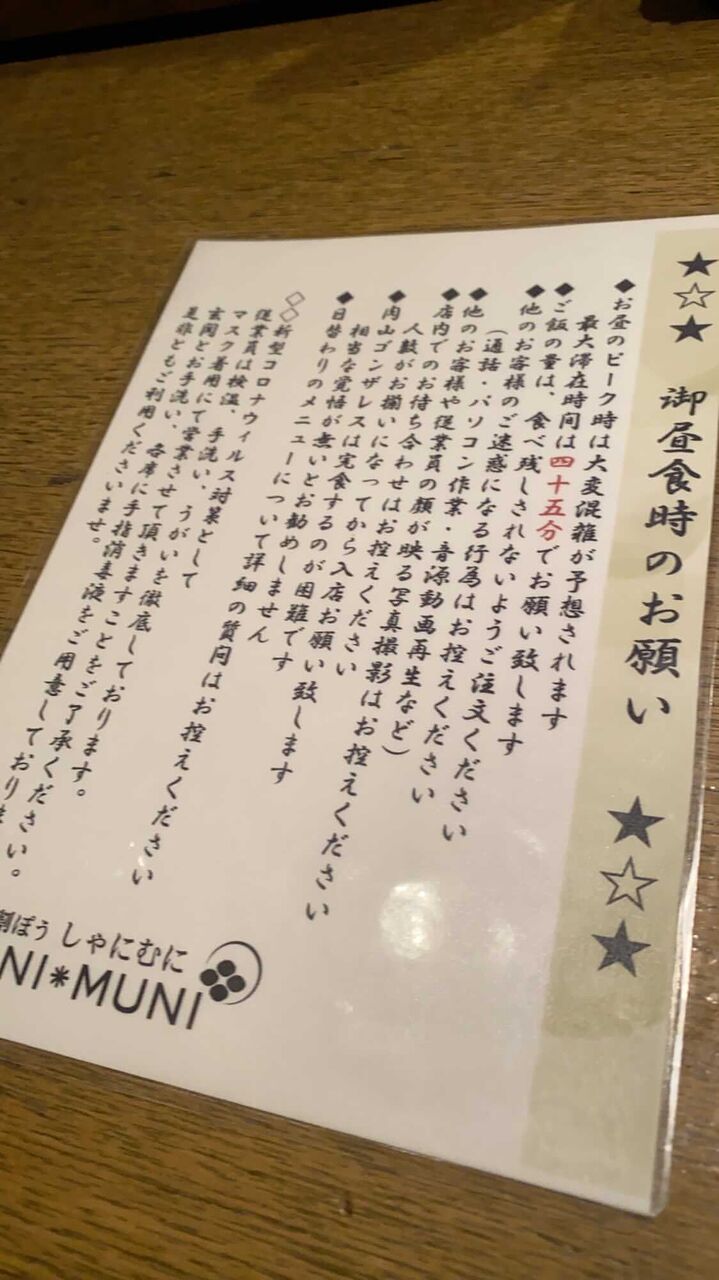 ★☆★ 御昼食時のお願い ★☆★
◆お昼のピーク時は大変混雑が予想されます
最大滞在時間は四十五分でお願い致します
◆ご飯の量は、食べ残しされないようご注文ください
◆他のお客様のご迷惑になる行為はお控えください
（通話・パソコン作業・音源動画再生など）
◆他のお客様や従業員の顔が映る写真撮影はお控えください
◆店内でのお待ち合わせはお控えください
人数がお揃いになってから入店お願い致します
◆肉山ゴンザレスは完食するのが困難です
相当な覚悟が無いとお勧めしません
◆日替わりのメニューについて詳細の質問はお控えください
◇◇新型コロナウィルス対策として
従業員は検温、手洗い、うがいを徹底しております。
マスク着用にて営業させて頂きますことをご了承ください。
玄関とお手洗い、各席に手指消毒液をご用意しておりま
是非ともご利用くださいませ。
割ぽう しゃにむに
NI*MUNI